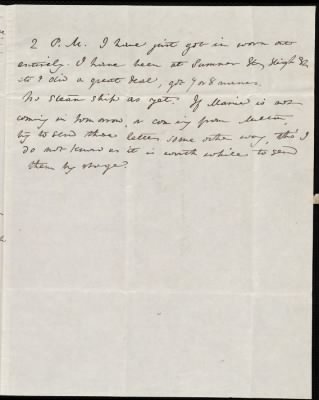 2 P.M. I have just got in worn out
entirely. I have been at Summer St, High St,
etc & did a great deal, got 7 or 8 names.
No steam ship as yet. If Maria is not
coming in tomorrow, or coming from
try to send these letters some other way, tho' I
do not know as it is worth while to send
them by stage.